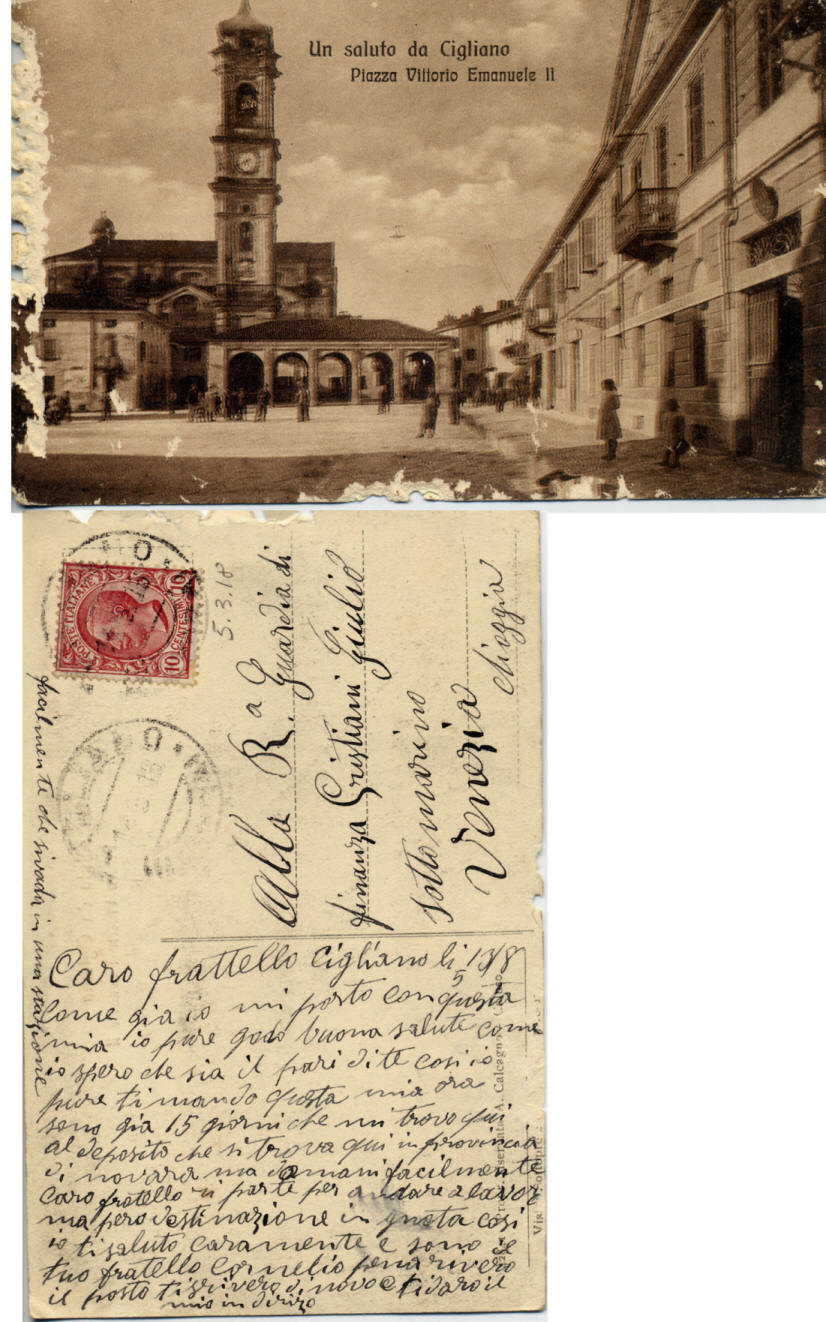 Un saluto da Cigliano
Piazza Vittorio Emanuele II
POSTE ITALIANE
CENTESIMI 10
10
5.3.18
Alla R.a Guardia di
finanza Cristiani Giulio
sotto marino
Venezia
chioggia
Caro frattello Cigliano li 5
Come gia io mi porto con questa
mia io pure godo buona salute come
io spero che sia il pari di te cosi io
pure ti mando questa mia ora
sono gia 15 giorni che mi trovo qui
al deposito che si trova qui in provincia
di novara ma domani facilmente
caro fratello si parte per andare a lavor
ma pero destinazione in questa cosi
io ti saluto caramente e sono il
tuo fratello Cornelio pena rivero
il posto ti scrivero di novo e ti daro il
mio indirizo
facilmente che si vada in una stazione
A. Calcagno